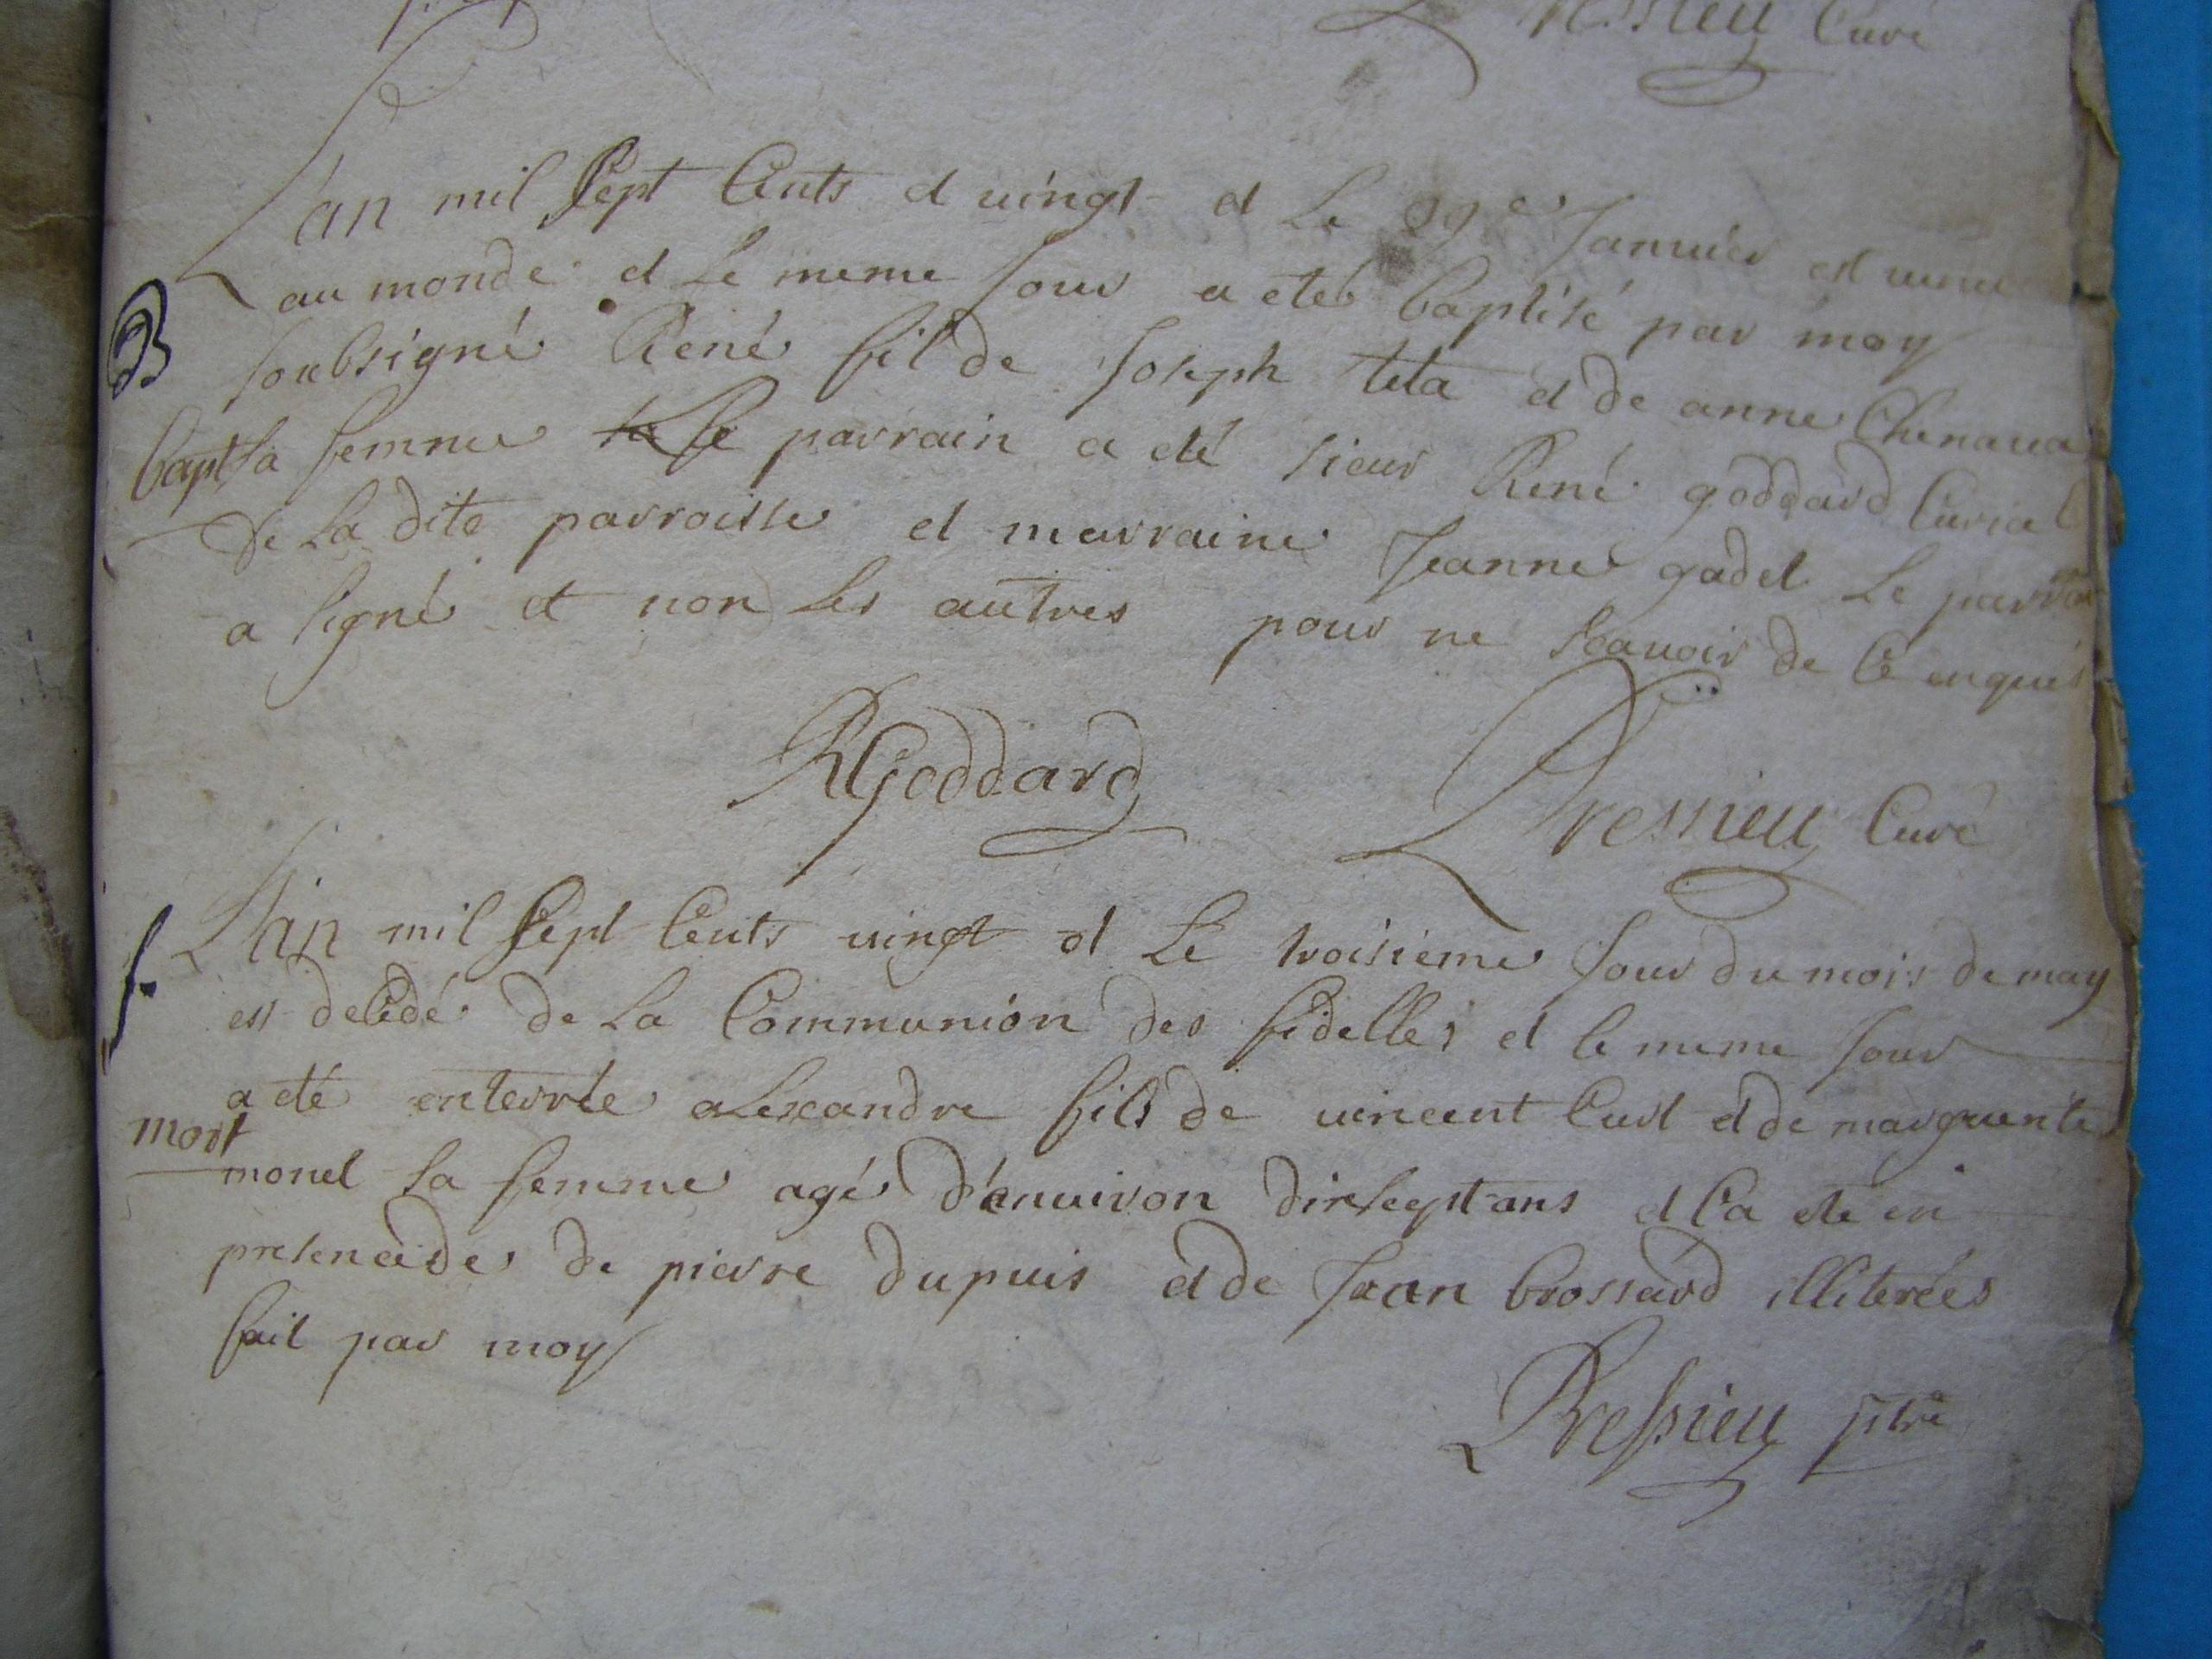 Pressieu Curé
L'an mil sept Cents et vingt et Le 29e Januier est venu
au monde et le meme Jour a eté baptisé par moy
B
soubsigné René fil de Joseph teta et de anne Chenaua
bapt
sa femme le parrain a eté sieur René goddard Curial
de La dite parroisse et marraine Jeanne gadet Le parrain
a signé et non les autres pour ne scauoir de Ce enquis
RGoddard Pressieu Curé
L'an mil sept Cents vingt et Le troisieme Jour du mois de may
f.
est decedé de La Communion des fidelles et le meme Jour
a eté enterrée aLexandre fils de vincent Curt et de marguerite
mort
monet sa femme agé d'enuiron dixsept ans et Ca ete en
presence de pierre dupuis et de Jean brossard illiterées
fait par moy
Pressieu ptre